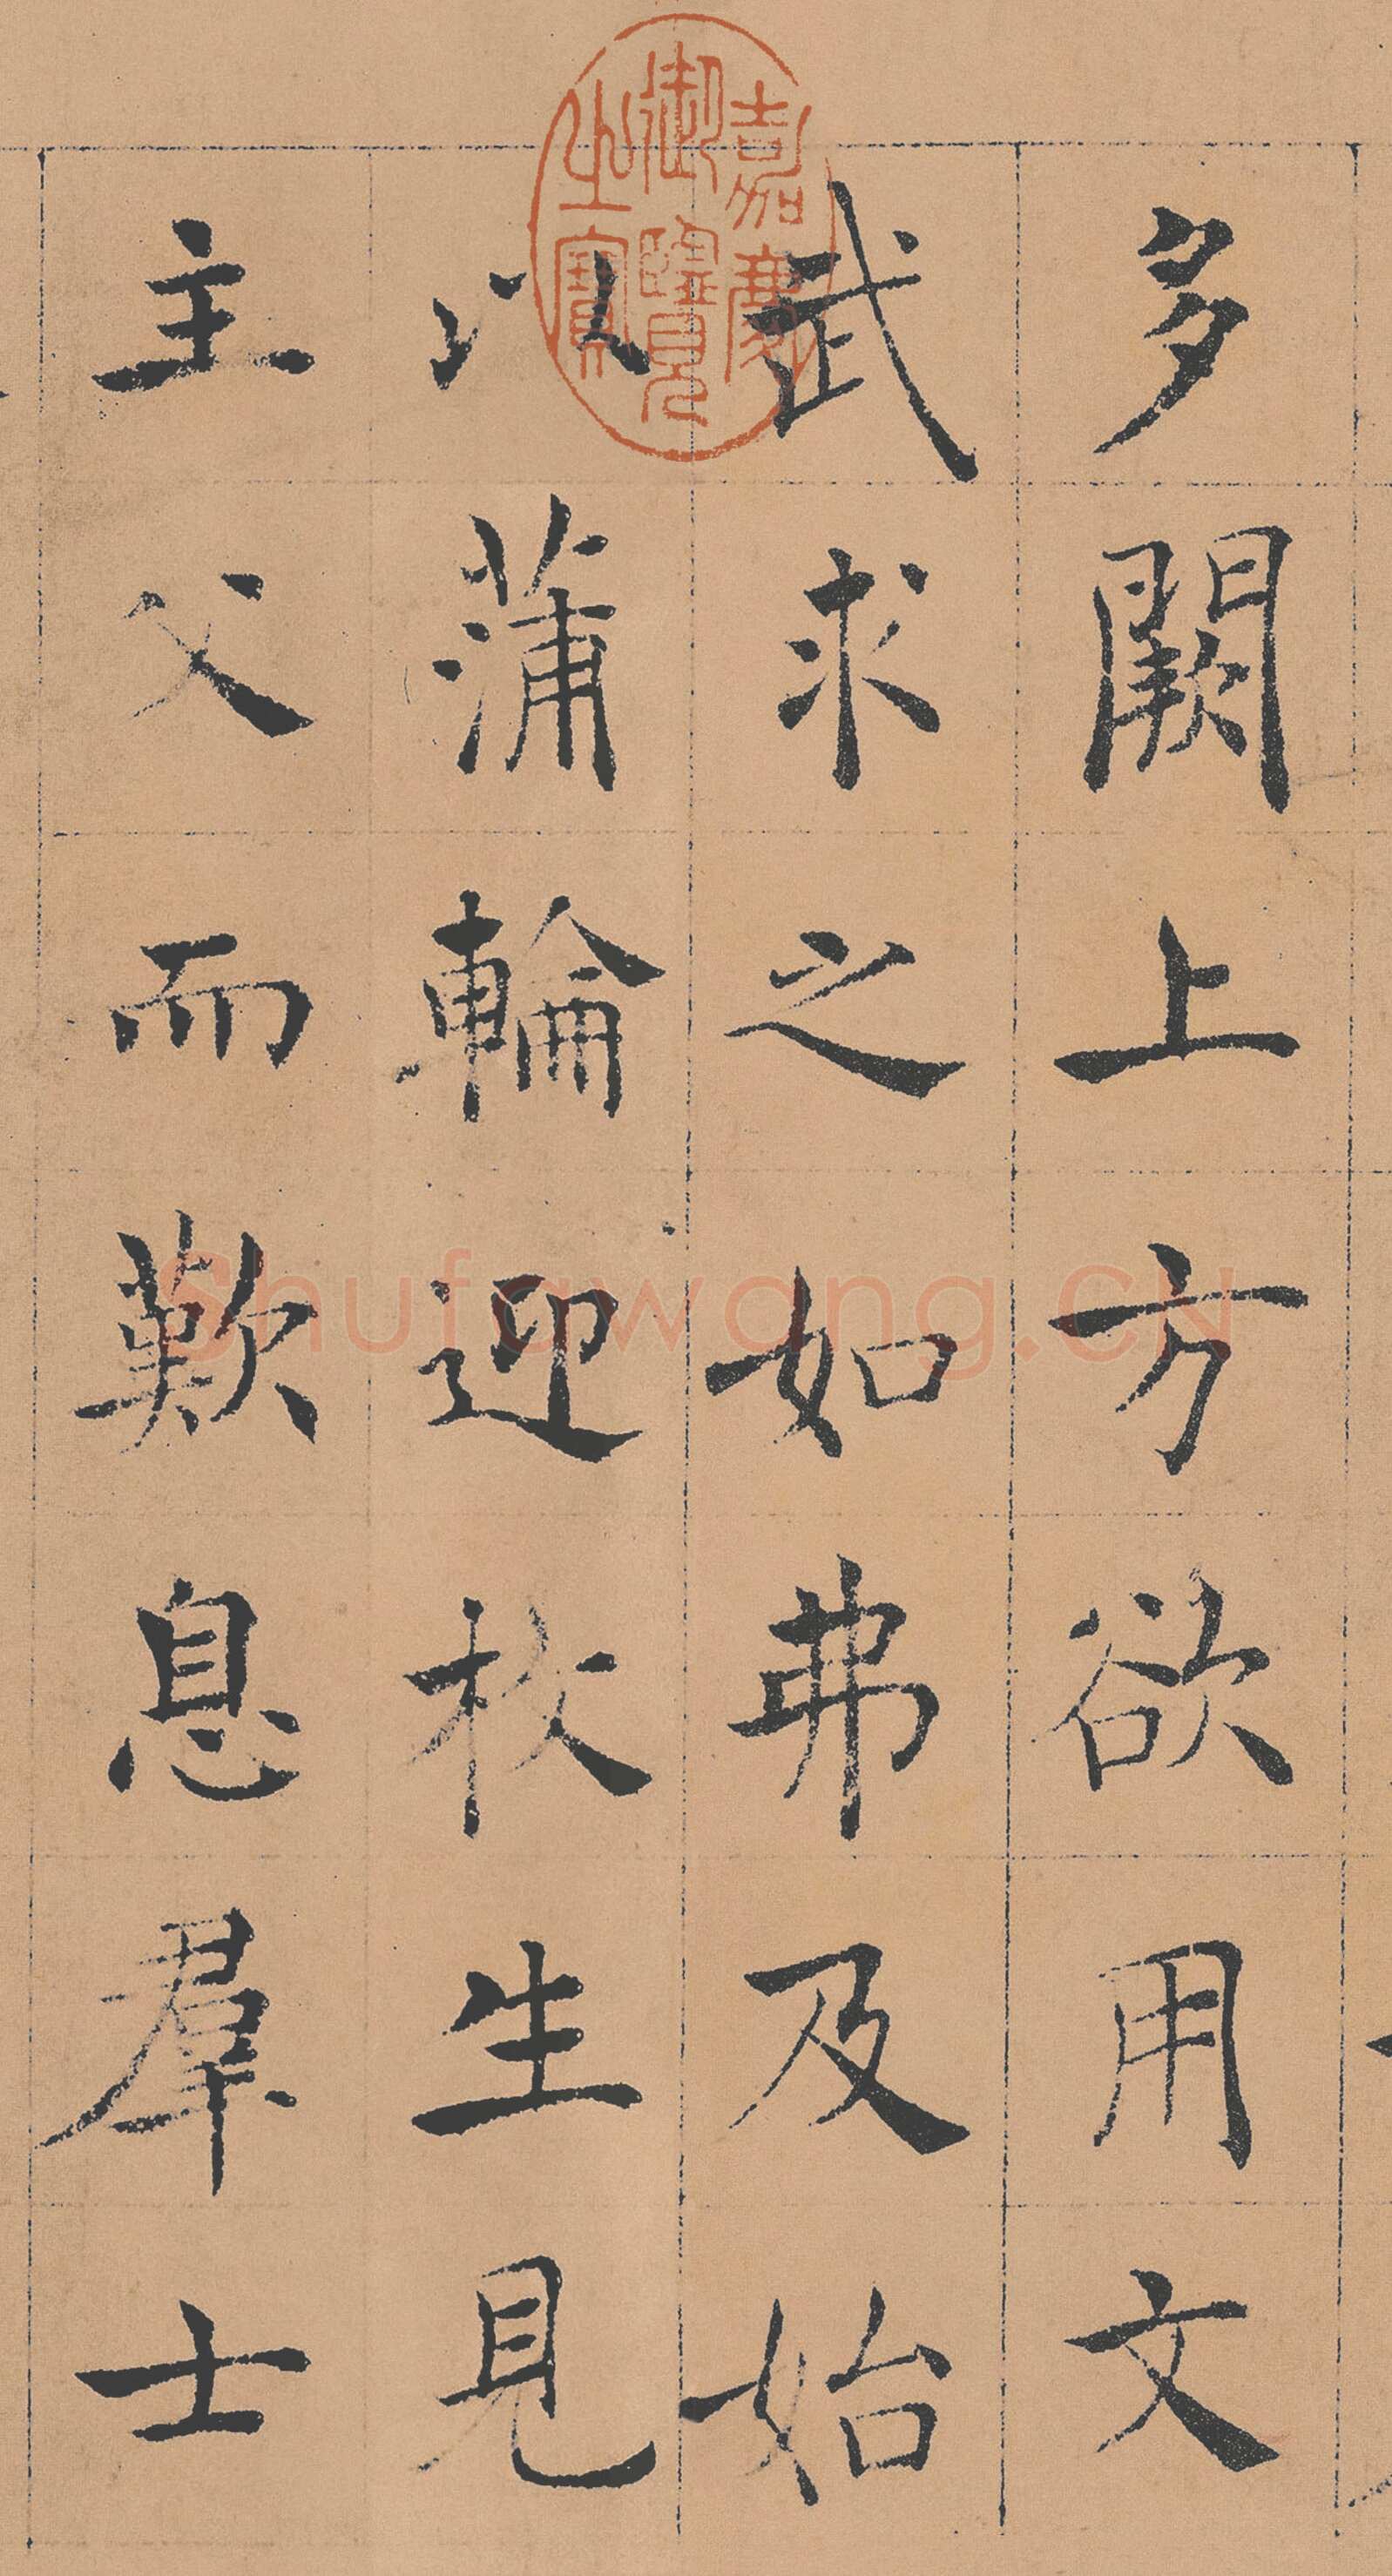 多闕上方欲用文
武求之如弗及始
以蒲輪迎枚生見
主父而歎息羣士
嘉慶御覽之寶
Shufawang.CN